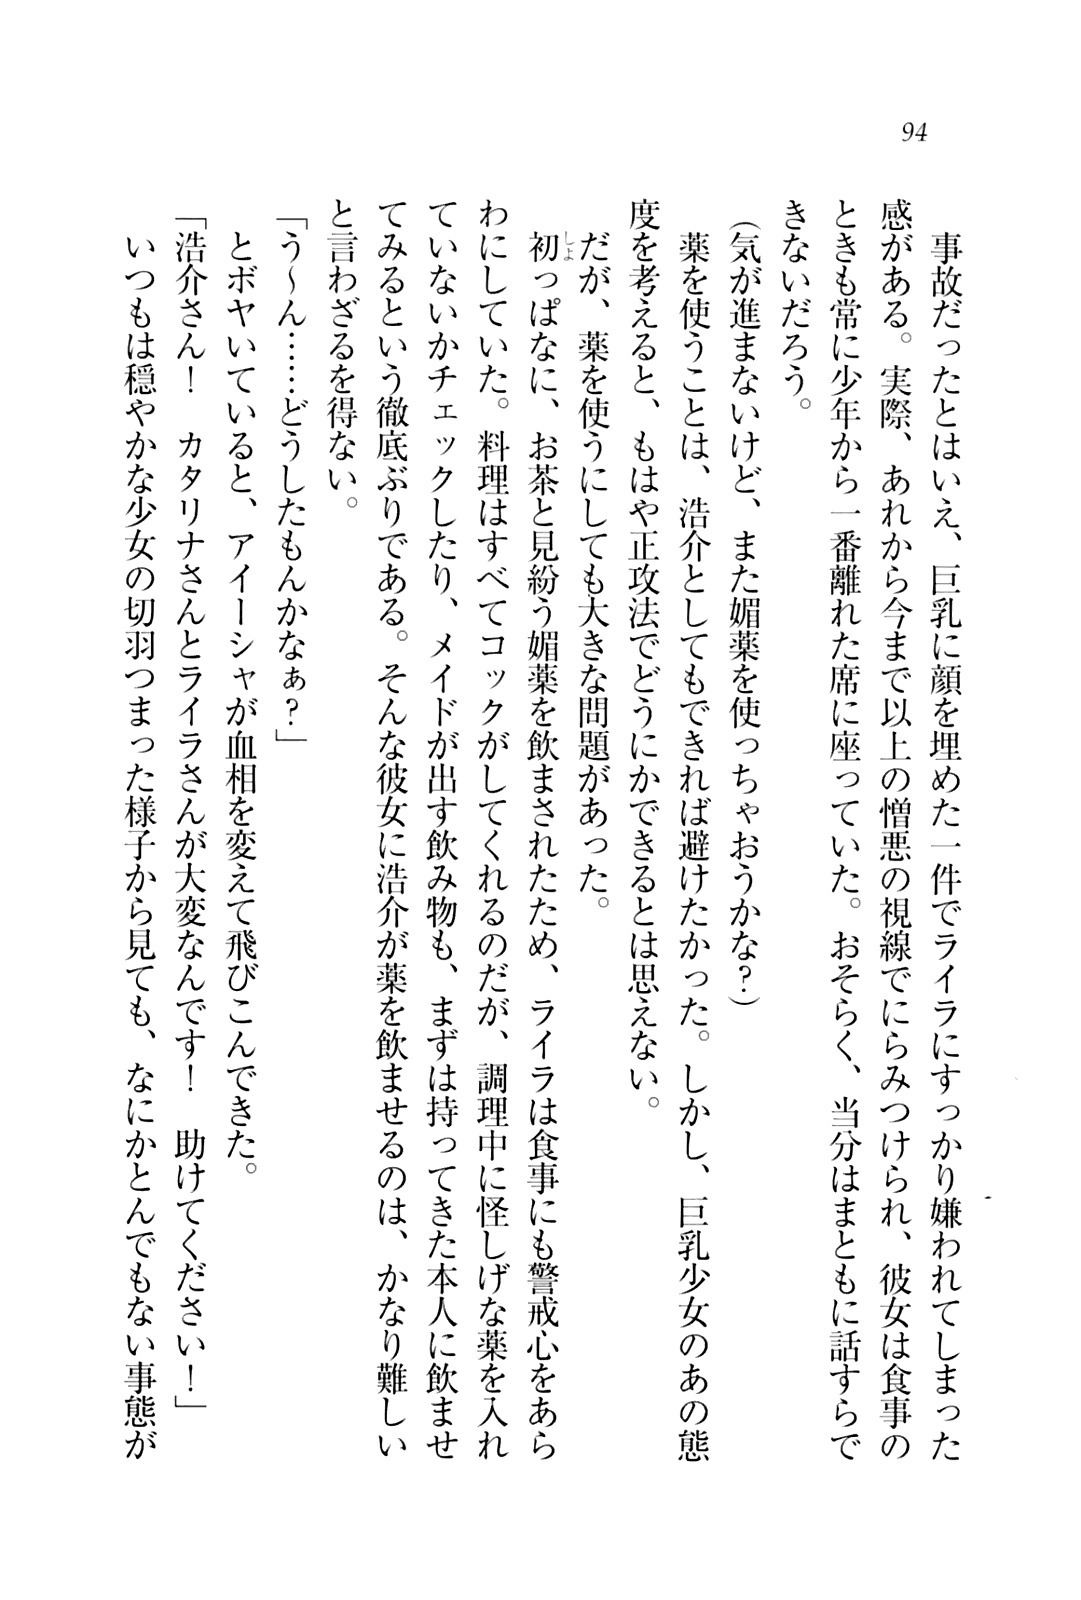 94
事故だったとはいえ、巨乳に顔を埋めた一件でライラにすっかり嫌われてしまった
感がある。実際、あれから今まで以上の憎悪の視線でにらみつけられ、彼女は食事の
ときも常に少年から一番離れた席に座っていた。おそらく、当分はまともに話すらで
きないだろう。
（気が進まないけど、また媚薬を使っちゃおうかな？）
薬を使うことは、浩介としてもできれば避けたかった。しかし、巨乳少女のあの態
度を考えると、もはや正攻法でどうにかできるとは思えない。
だが、薬を使うにしても大きな問題があった。
初っぱなに、お茶と見紛う媚薬を飲まされたため、ライラは食事にも警戒心をあら
わにしていた。料理はすべてコックがしてくれるのだが、調理中に怪しげな薬を入れ
ていないかチェックしたり、メイドが出す飲み物も、まずは持ってきた本人に飲ませ
てみるという徹底ぶりである。そんな彼女に浩介が薬を飲ませるのは、かなり難しい
と言わざるを得ない。
「う〜ん……どうしたもんかなぁ？」
とボヤいていると、アイーシャが血相を変えて飛びこんできた。
「浩介さん！　カタリナさんとライラさんが大変なんです！　助けてください！」
いつもは穏やかな少女の切羽つまった様子から見ても、なにかとんでもない事態が